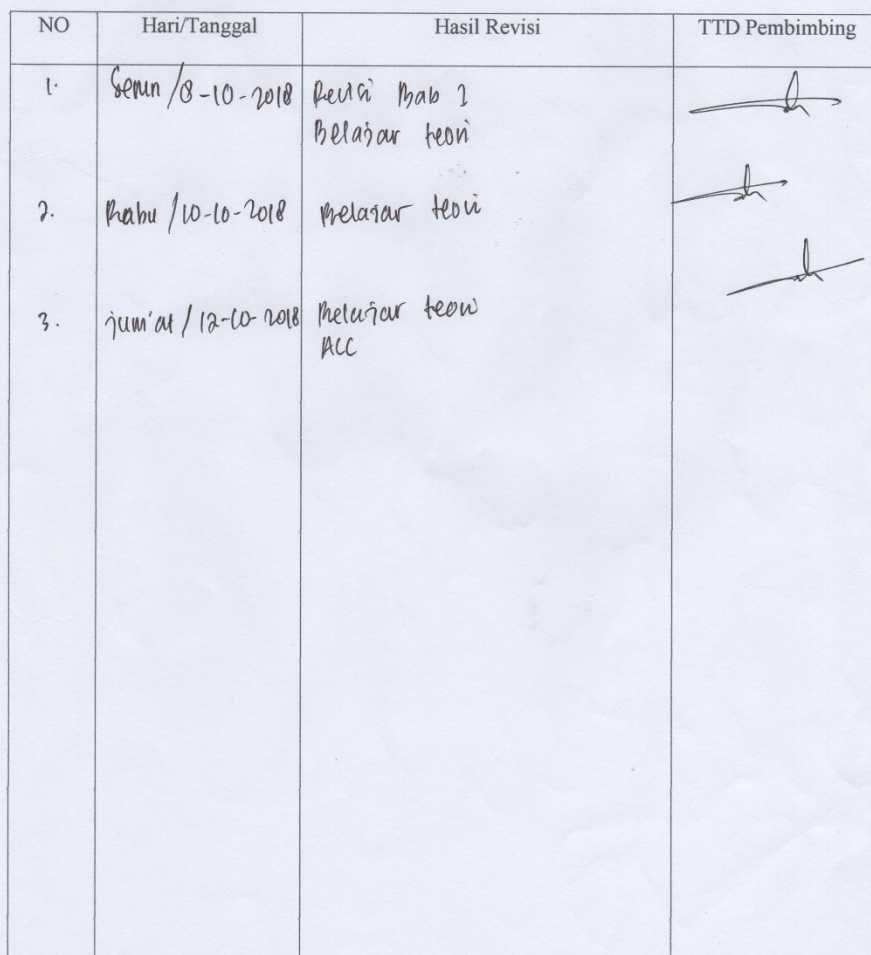 NO Hari/Tanggal Hasil Revisi TTD Pembimbing
1. Senin / 8-10-2018 Revisi Bab 1
Belajar teori
2. Rabu / 10-10-2018 Belajar teori
3. jum'at / 12-10-2018 Belajar teori
ACC